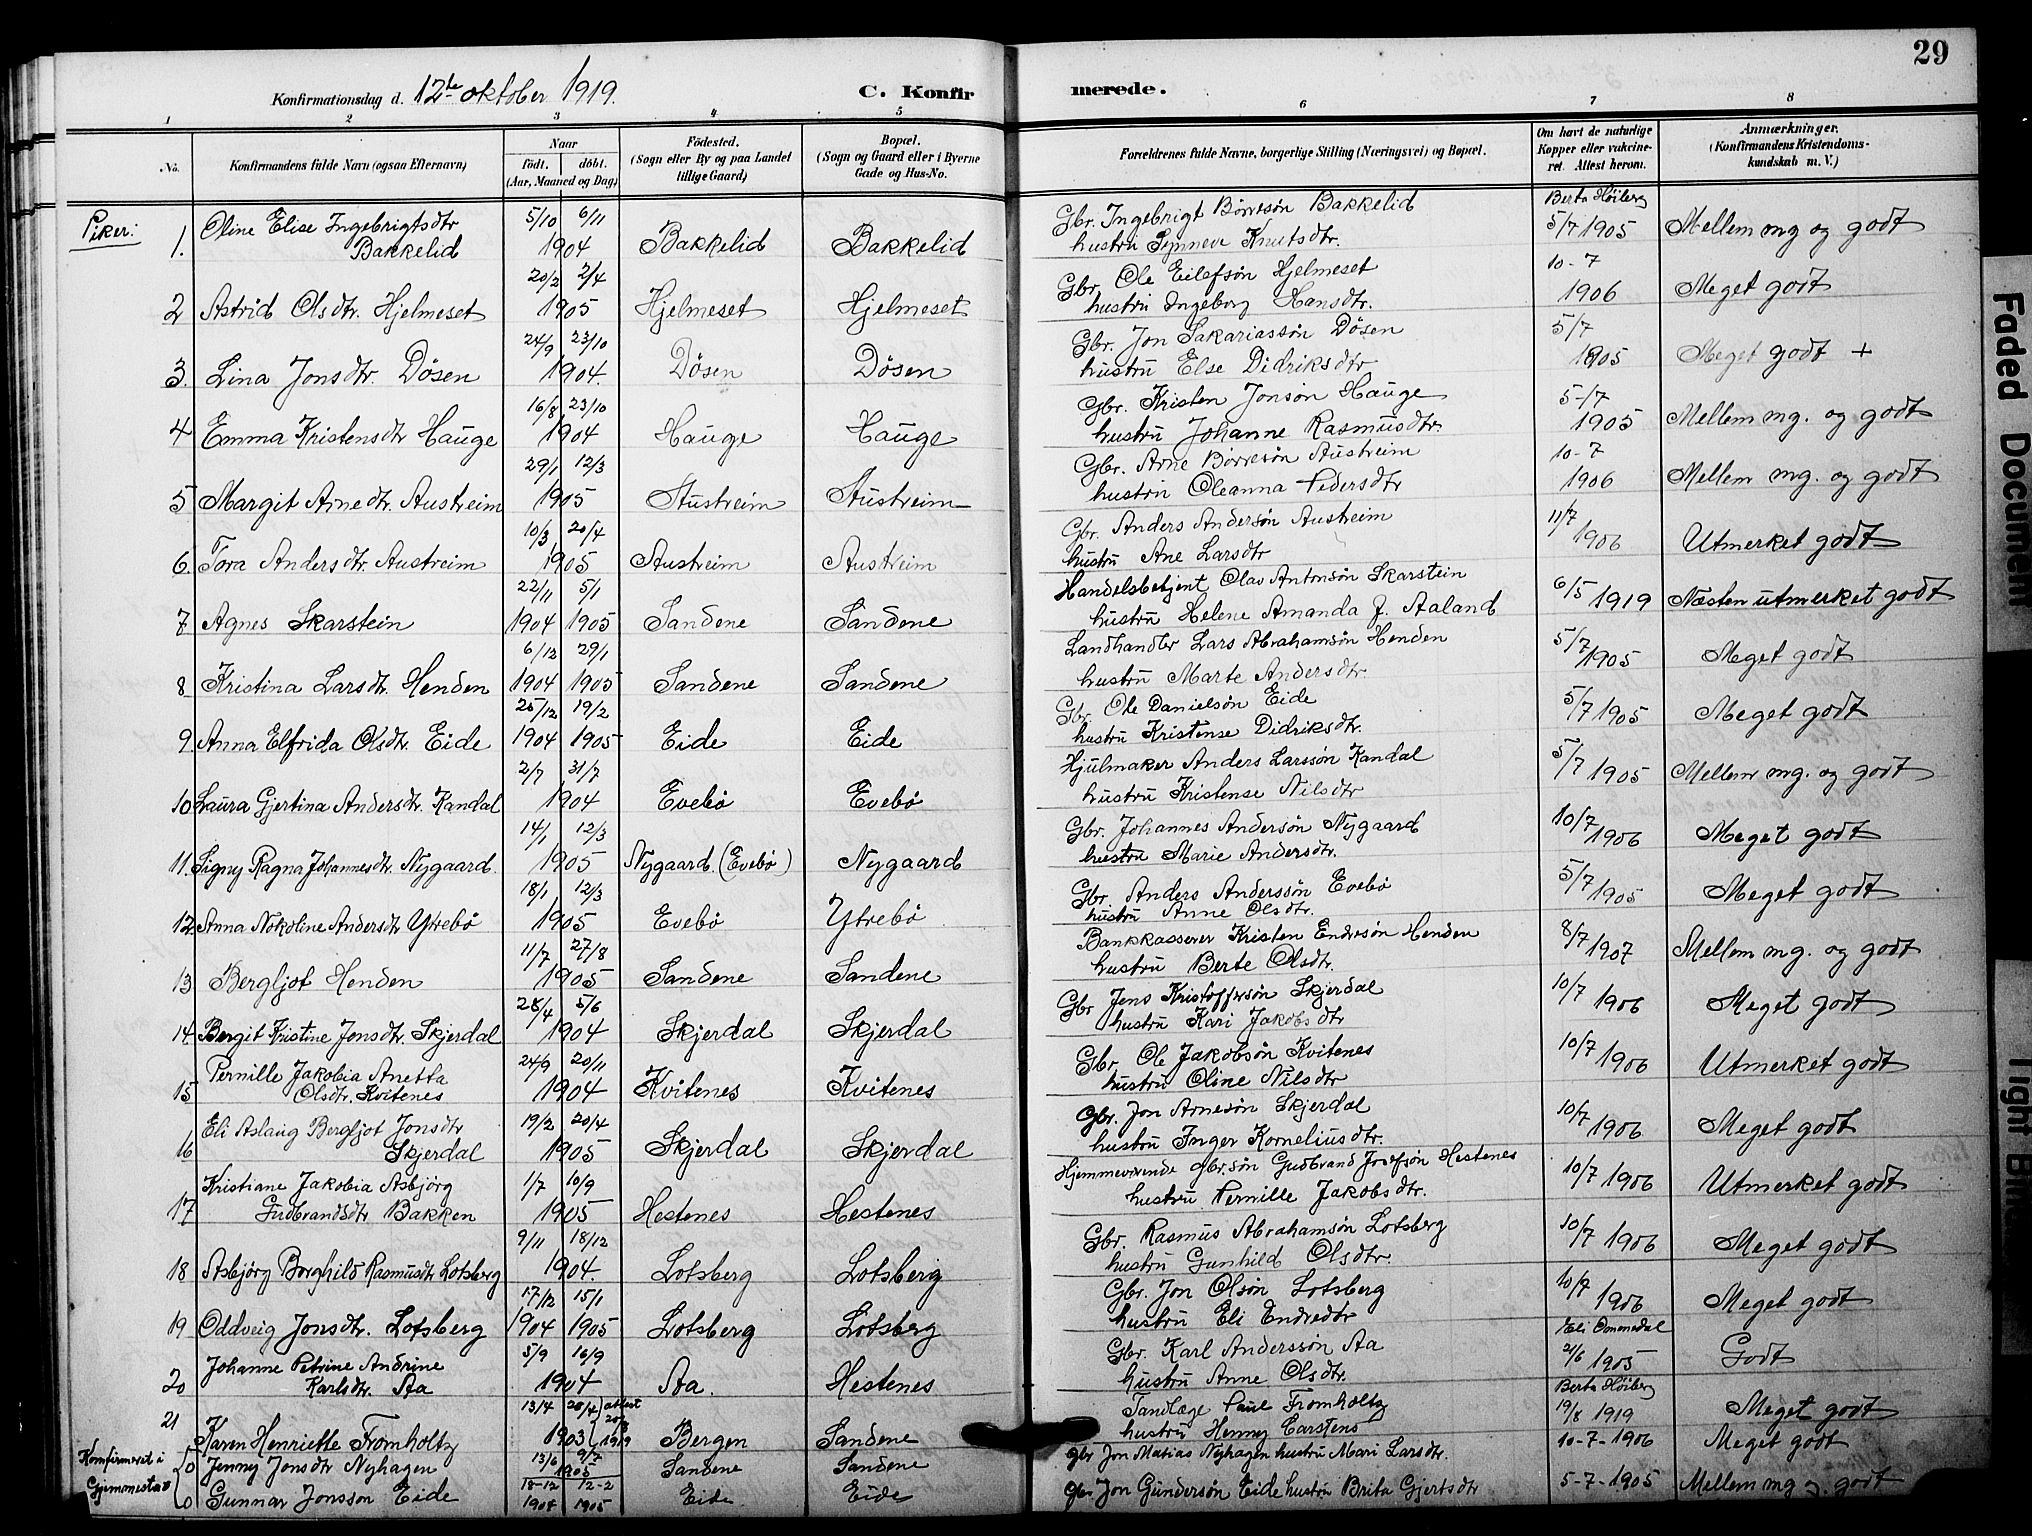 29
Konfirmationsdag d. 12te oktober 1919. C. Konfirmerede.
1 2 3 4 5 6 7 8
No. Konfirmandens fulde Navn (ogsaa Efternavn) Naar födt. döbt. (Aar, Maaned og Dag) Födested. (Sogn eller By og paa Landet tillige Gaard) Bopæl. (Sogn og Gaard eller i Byerne Gade og Hus-No. Forældrenes fulde Navne, borgerlige Stilling (Næringsvei) og Bopæl. Om havt de naturlige Kopper eller vakcineret. Attest herom. Anmærkninger. (Konfirmandens Kristendomskundskab m. V.)
Piker:
1. Oline Elise Ingebrigtsdtr Bakkelid 5/10 6/11 1904 Bakkelid Bakkelid Gbr. Ingebrigt Börresön Bakkelid hustru Synneve Knutsdtr. Berta Höiberg 5/7 1905 Mellem mg og godt
2 Astrid Olsdtr. Hjelmeset 20/2 2/4 1905 Hjelmeset Hjelmeset Gbr. Ole Eilefsön Hjelmeset hustru Ingeborg Hansdtr. 10-7 1906 Meget godt
3. Lina Jonsdtr. Dösen 24/9 23/10 1904. Dösen Dösen Gbr. Jon Sakariassön Dösen hustru Else Didriksdtr 5/7 1905 Meget godt +
4 Emma Kristensdtr Hauge 16/8 23/10 1904 Hauge Hauge Gbr. Kristen Jonsön Hauge hustru Johanne Rasmusdtr. 5-/7 1905 Mellem mg. og godt
5 Margit Arnedtr. Austreim 29/1 12/3 1905 Austreim Austreim Gbr. Arne Börresön Austreim hustru Oleanna Pedersdtr 10-7 1906 Mellem mg. og godt
6. Tora Andersdtr. Austreim 10/3 20/4 1905 Austreim Austreim Gbr. Anders Andersön Austreim hustru Ane Larsdtr 11/7 1906 Utmerket godt
7 Agnes Skarstein 22/11 5/1 1904 1905 Sandene Sandene Handelsbetjent Olav Antonsön Skarstein hustru Helene Amanda J. Aaland 6/5 1919 Næsten utmerket godt
8 Kristina Larsdtr. Henden 6/12 29/1 1904 1905 Sandene Sandene Landhandler Lars Abrahamsön Henden hustru Marte Andersdtr. 5/7 1905 Meget godt
9 Anna Elfrida Olsdtr. Eide 25/12 19/2 1904 1905 Eide Eide Gbr. Ole Danielsön Eide hustru Kristense Didriksdtr. 5/7 1905 Meget godt
10 Laura Gjertina Andersdtr. Kandal 2/7 31/7 1904 Evebö Evebö Hjulmaker Anders Larssön Kandal hustru Kristense Nilsdtr 5/7 1905 Mellem mg. og godt
11. Signy Ragna Johannesdtr. Nygaard. 14/1 12/3 1905 Nygaard. (Evebö) Nygaard Gbr. Johannes Andersön Nygaard hustru Marie Andersdtr. 10/7 1906 Meget godt
12. Anna Nokoline Andersdtr Ytrebö 18/1 12/3 1905 Evebö Ytrebö Gbr. Anders Anderssön Evebö hustru Anne Olsdtr. 5/7 1905 Meget godt
13 Bergljot Henden 11/7 27/8 1905 Sandene Sandene Bankkasserer Kristen Endresön Henden hustru Berte Olsdtr. 8/7 1907 Mellem mg. og godt
14 Bergit Kristine Jonsdtr. Skjerdal 28/4 5/6 1904 Skjerdal Skjerdal Gbr Jens Kristoffersön Skjerdal hustru Kari Jakobsdtr 10/7 1906 Meget godt
15 Pernille Jakobia Anetta Olsdtr. Kvitenes 24/9 20/11 1904 Kvitenes Kvitenes Gbr. Ole Jakobsön Kvitenes hustru Oline Nilsdtr 10/7 1906 Utmerket godt
16 Eli Aslaug Bergljot Jonsdtr Skjerdal 19/2 20/4 1905 Skjerdal Skjerdal Gbr. Jon Arnesön Skjerdal hustru Inger Korneliusdtr. 10/7 1906 Meget godt
17 Kristiane Jakobia Asbjörg Gudbrandsdtr Bakken 1/7 10/9 1905 Hestenes Hestenes Hjemmeværende gbr.sön Gudbrand Josefsön Hestenes hustru Pernille Jakobsdtr. 10/7 1906 Utmerket godt
18 Asbjörg Borghild Rasmusdtr Lotsberg 9/11 18/12 1904. Lotsberg Lotsberg Gbr. Rasmus Abrahamsön Lotsberg hustru Gunhild Olsdtr. 10/7 1906 Meget godt
19 Oddveig Jonsdtr. Lotsberg 17/12 15/1 1904 1905 Lotsberg Lotsberg Gbr. Jon Olsön Lotsberg hustru Eli Endredtr 10/7 1906 Meget godt
20 Johanne Petrine Andrine Karlsdtr. Aa 5/9 16/9 1904 Aa. Hestenes Gbr. Karl Anderssön Aa hustru Anne Olsdtr. Eli Ommedal 2/6 1905 Godt
21 Karen Henriette Fromholtz 13/4 28/4 attest 1903 1919 Bergen Sandene Tandlæge Paul Fromholtz hustru Henny Carstens Berta Höiberg 19/8 1919 Meget godt
Konfirmeret i
0 Jenny Jonsdtr Nyhagen 13/6 9/7 1905 Sandene Sandene gbr Jon Matias Nyhagen hustru Mari Larsdtr. 10-7-1906 Meget godt
0 Gunnar Jonsson Eide 18-12 12-2 1904 1905 Eide Eide gbr. Jon Gundersön Eide hustru Brita Gjertsdtr 5-7-1905 Mellem mg og godt
Faded Document
Tight